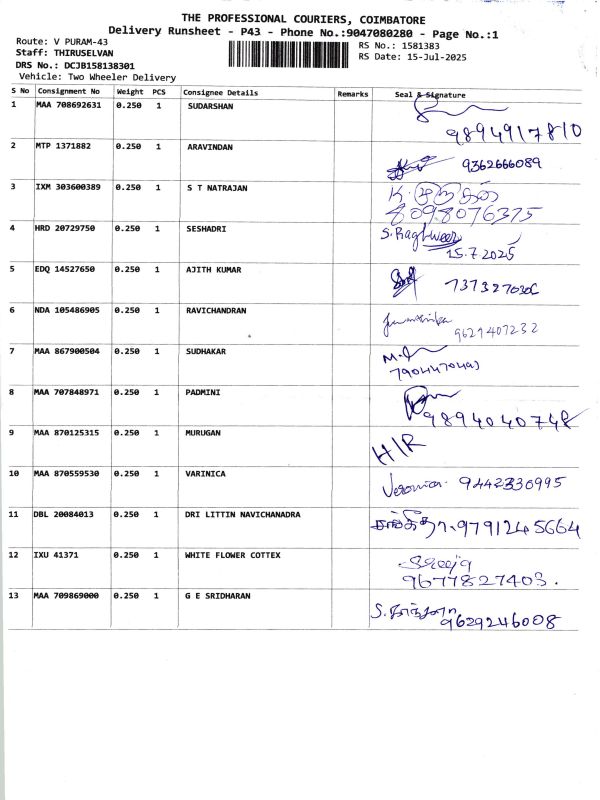 THE PROFESSIONAL COURIERS, COIMBATORE
Delivery Runsheet - P43 - Phone No.:9047080280 - Page No.:1
Route: V PURAM-43
Staff: THIRUSELVAN
DRS No.: DCJB158138301
Vehicle: Two Wheeler Delivery
RS No.: 1581383
RS Date: 15-Jul-2025
S No Consignment No Weight PCS Consignee Details Remarks Seal & Signature
1 MAA 708692631 0.250 1 SUDARSHAN
9894917810
2 MTP 1371882 0.250 1 ARAVINDAN
9362666089
3 IXM 303600389 0.250 1 S T NATRAJAN
8098076375
4 HRD 20729750 0.250 1 SESHADRI S.Raghuveer
15.7.2025
5 EDQ 14527650 0.250 1 AJITH KUMAR
6 NDA 105486905 0.250 1 RAVICHANDRAN
9629407232
7 MAA 867900504 0.250 1 SUDHAKAR
8 MAA 707848971 0.250 1 PADMINI
9894040748
9 MAA 870125315 0.250 1 MURUGAN H/R
10 MAA 870559530 0.250 1 VARINICA 9442330995
11 DBL 20084013 0.250 1 DRI LITTIN NAVICHANADRA 9791245664
12 IXU 41371 0.250 1 WHITE FLOWER COTTEX
9677827403.
13 MAA 709869000 0.250 1 G E SRIDHARAN
9629246008